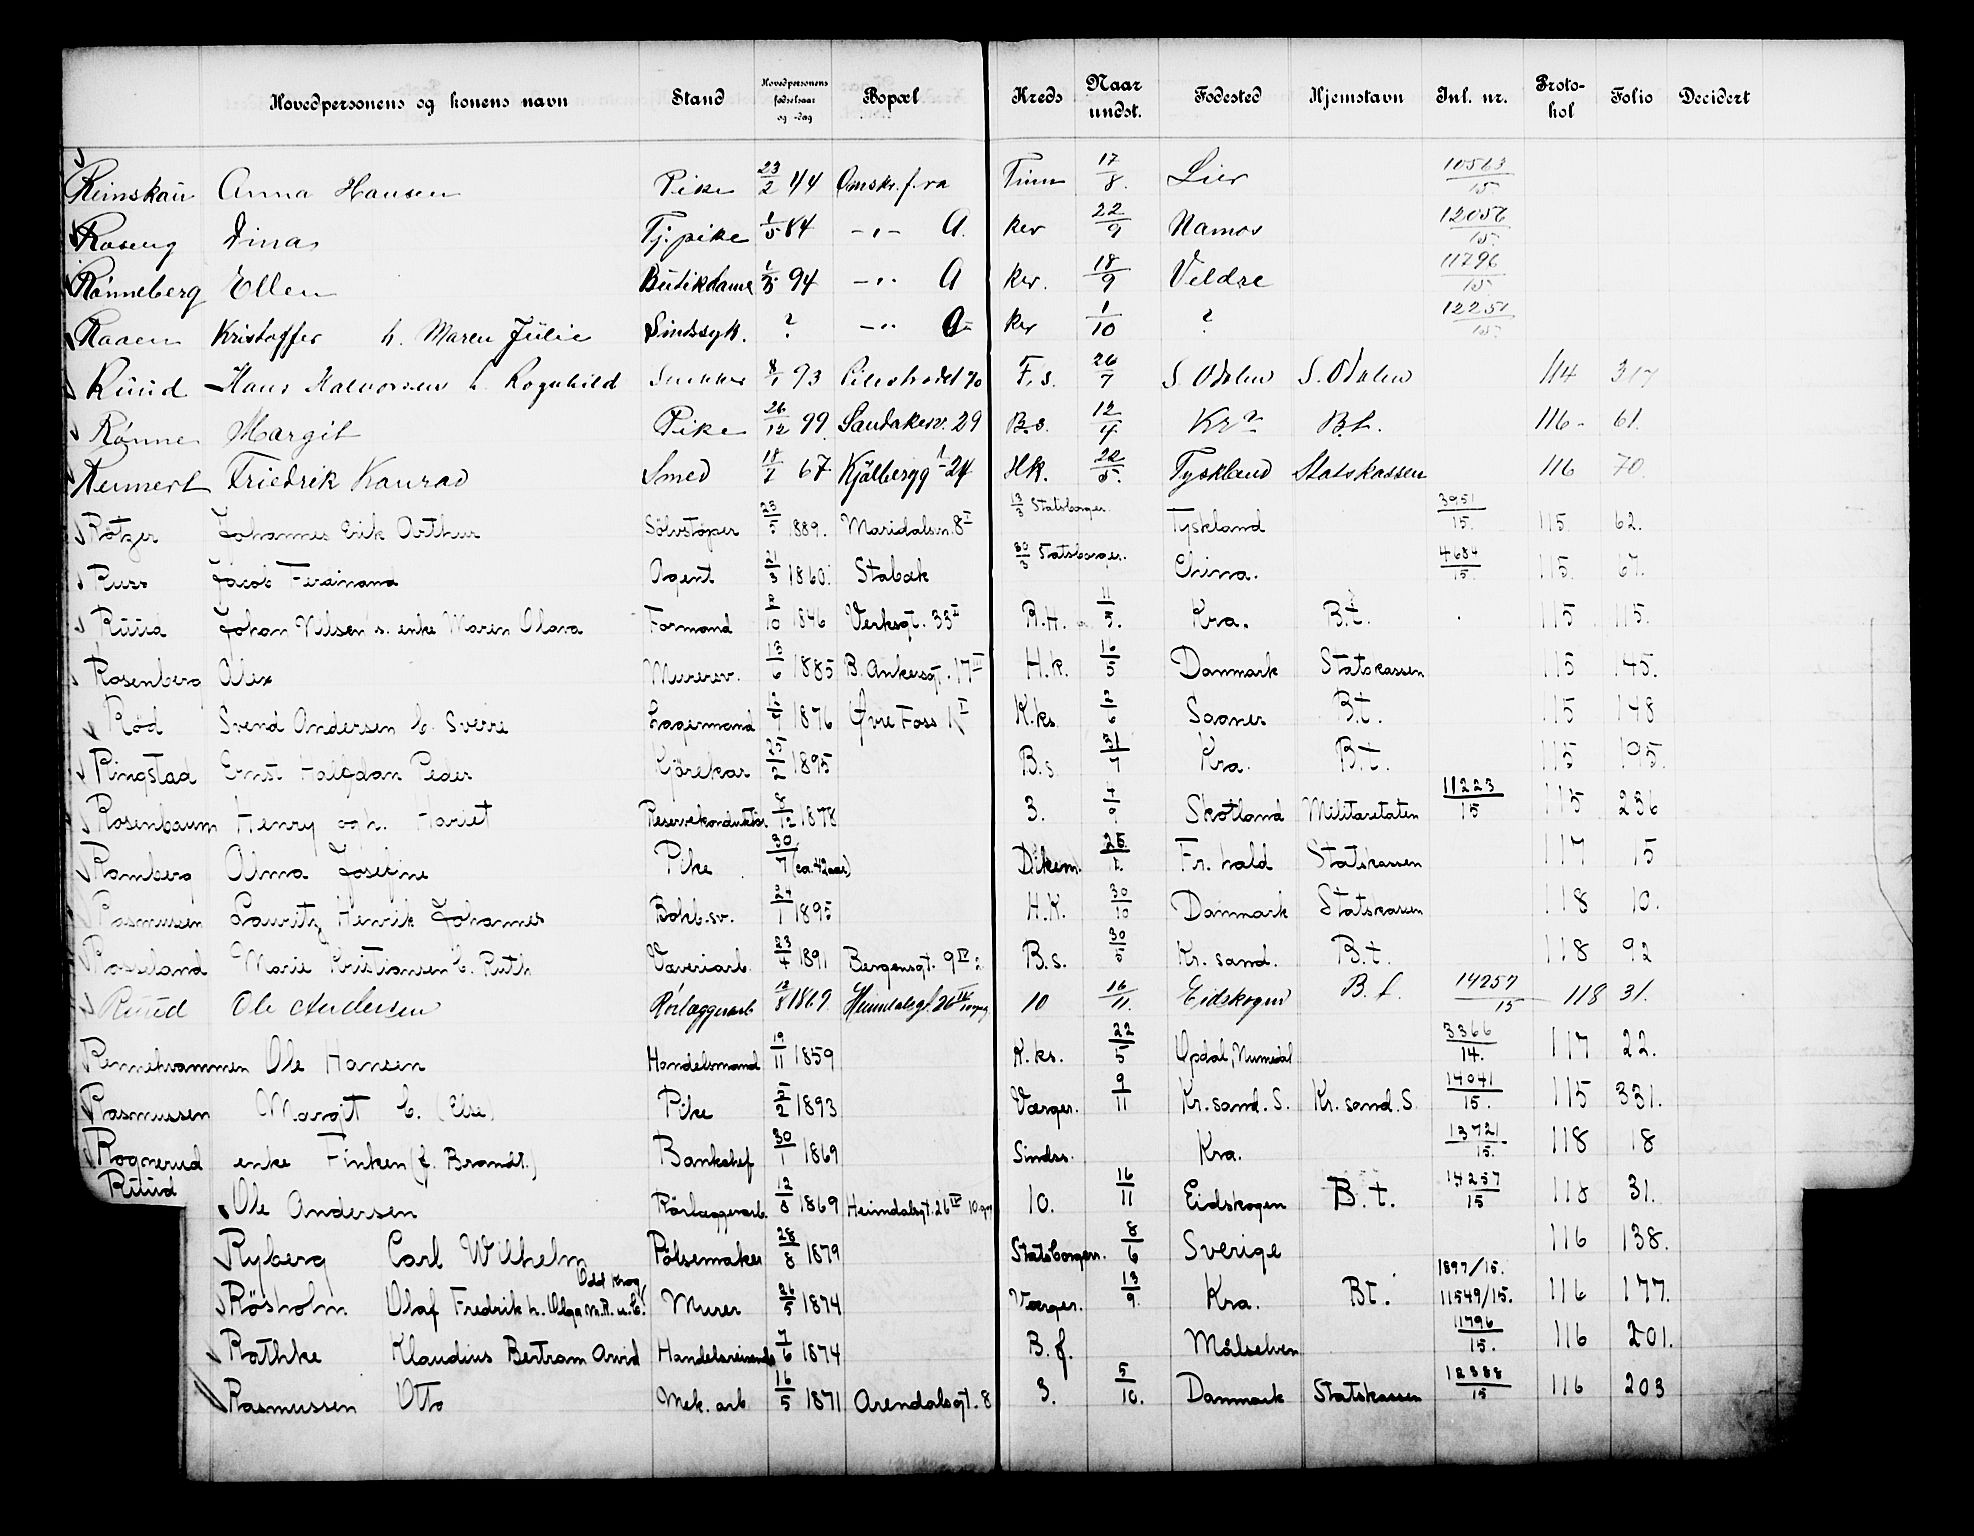 Hovedpersonens og konens navn Stand Hovedpersonens fødselsaar og -dag Bopæl Kreds Naar undst. Fødested Hjemstavn Inl. nr. Protokol Folio Decidert
Reinskau Anna Hansen Pike 23/2 44 Omsk. f. va Tinn 17/8. Lier 10563/15
Roseng Dina Tj.pike 1/5 84 - " - A. ker 22/9 Namos 12056/15.
Rønneberg Ellen Butikdame 94 - " A ker. 18/9 Veldre 11796/15
Raaen Kristoffer h. Maren Julie Sindssyk. ? - " A ker 1/10 ? 12251/15.
Ruud Hans Halvorsen h. Ragnhild Snekker 8/1 93 F.s. 26/7 S. Odalen S. Odalen 114 317
Rønne Margit Pike 26/12 99 Sandakerv. 29 B.s. 12/4. Kra B.t. 116 - 61.
Rennert Friedrik Konrad Smed 18/1 67 Kjølbergg 24 H.k. 22/5. Tyskland Statskassen 116 70.
Røtger Johannes Erik Arthur Sølvstøper 23/5 889. Maridalsvn. 8 I 13/3 Statsborger. Tyskland 3951/15. 115. 62.
Russ Jacob Ferdinand Agent 21/3 1860. Stabæk 30/3 Statsborger. China. 4684/15. 115. 67.
Ruud Johan Nilsen's enke Maren Olava Formand 2/10 1846 Verksgt. 33 II R.H. 11/5. Kra. B.t. 115 115.
Rosenberg Alex Murersv. 13/6 1885 B. Ankersgt. 17 III H.k. 16/5 Danmark Statskassen 115 145.
Rød Svend Andersen b. Sverre Lagermand 1876 Øvre Foss 1 I K.ks. 2/6 Sagnes B.t. 115 148
Ringstad Ernst Halfdan Peder Kjørekar 25/2 1895 B.s. 31/7 Kra. B.t. 115 195.
Rosenbaum Henry og h. Hariet Reservekonduktør 8/12 1878 3. 4/9 Skotland Militæretaten 11223/15 115 236
Romberg Alma Josefine Pike 30/7 (ca. 42 aar) Dikem. Fr. hald Statskassen 117 15
Rasmusen Lauritz Henrik Johannes Bokb.sv. 24/1 1895 H.K. 30/10 Danmark Statskassen 118 10.
Roseland Marie Kristiansen b. Ruth Væveriarb. 23/4 1891 Bergensgt. 9 IV 2 B.s. 30/5 Kr. sand. B.t. 118 92
Ruud Ole Andersen Rørlæggerarb 12/8 1869. Heimdalsgt. 26 IV 10 16/11. Eidskogen B. t. 14257/15 118 31.
Rennehvammen Ole Hansen Handelsmand 19/11 1859 K.ks. 22/5 Opdal, Numedal 3366/14. 117 22.
Rasmussen Margit b. (Else) Pike 2/2 1893 Værger. 9/11 Kr. sand. S. Kr. sand. S. 14041/15. 115 331.
Rognerud enke Finken (f. Brandt.) Bankchef 30/1 1869 Sindss. Kra. 13721/15. 118 18
Ruud Ole Andersen Rørlæggerarb. 12/8 1869 Heimdalsgt. 26 IV 10. 10. 16/11 Eidskogen B.t. 14257/15 118 31.
Ryberg Carl Wilhelm Pølsemaker 28/8 1879 Statsborgers. 8/6 Sverige 116 138.
Røsholm Olaf Fredrik h. Olga M.R. u. b. Odd Krog Murer 26/5 1874 Værger. 13/9. Kra. Bt. 1897/15. 11549/15. 116 177.
Rathke Klaudius Bertram Arvid Handelsreisende 7/6 1874 B.f. Målselven 11796/15. 116 201.
Rasmussen Otto Mek. arb 16/5 1871 Arendalsgt. 8 3. 5/10. Danmark Statskassen 12388/15 116 203